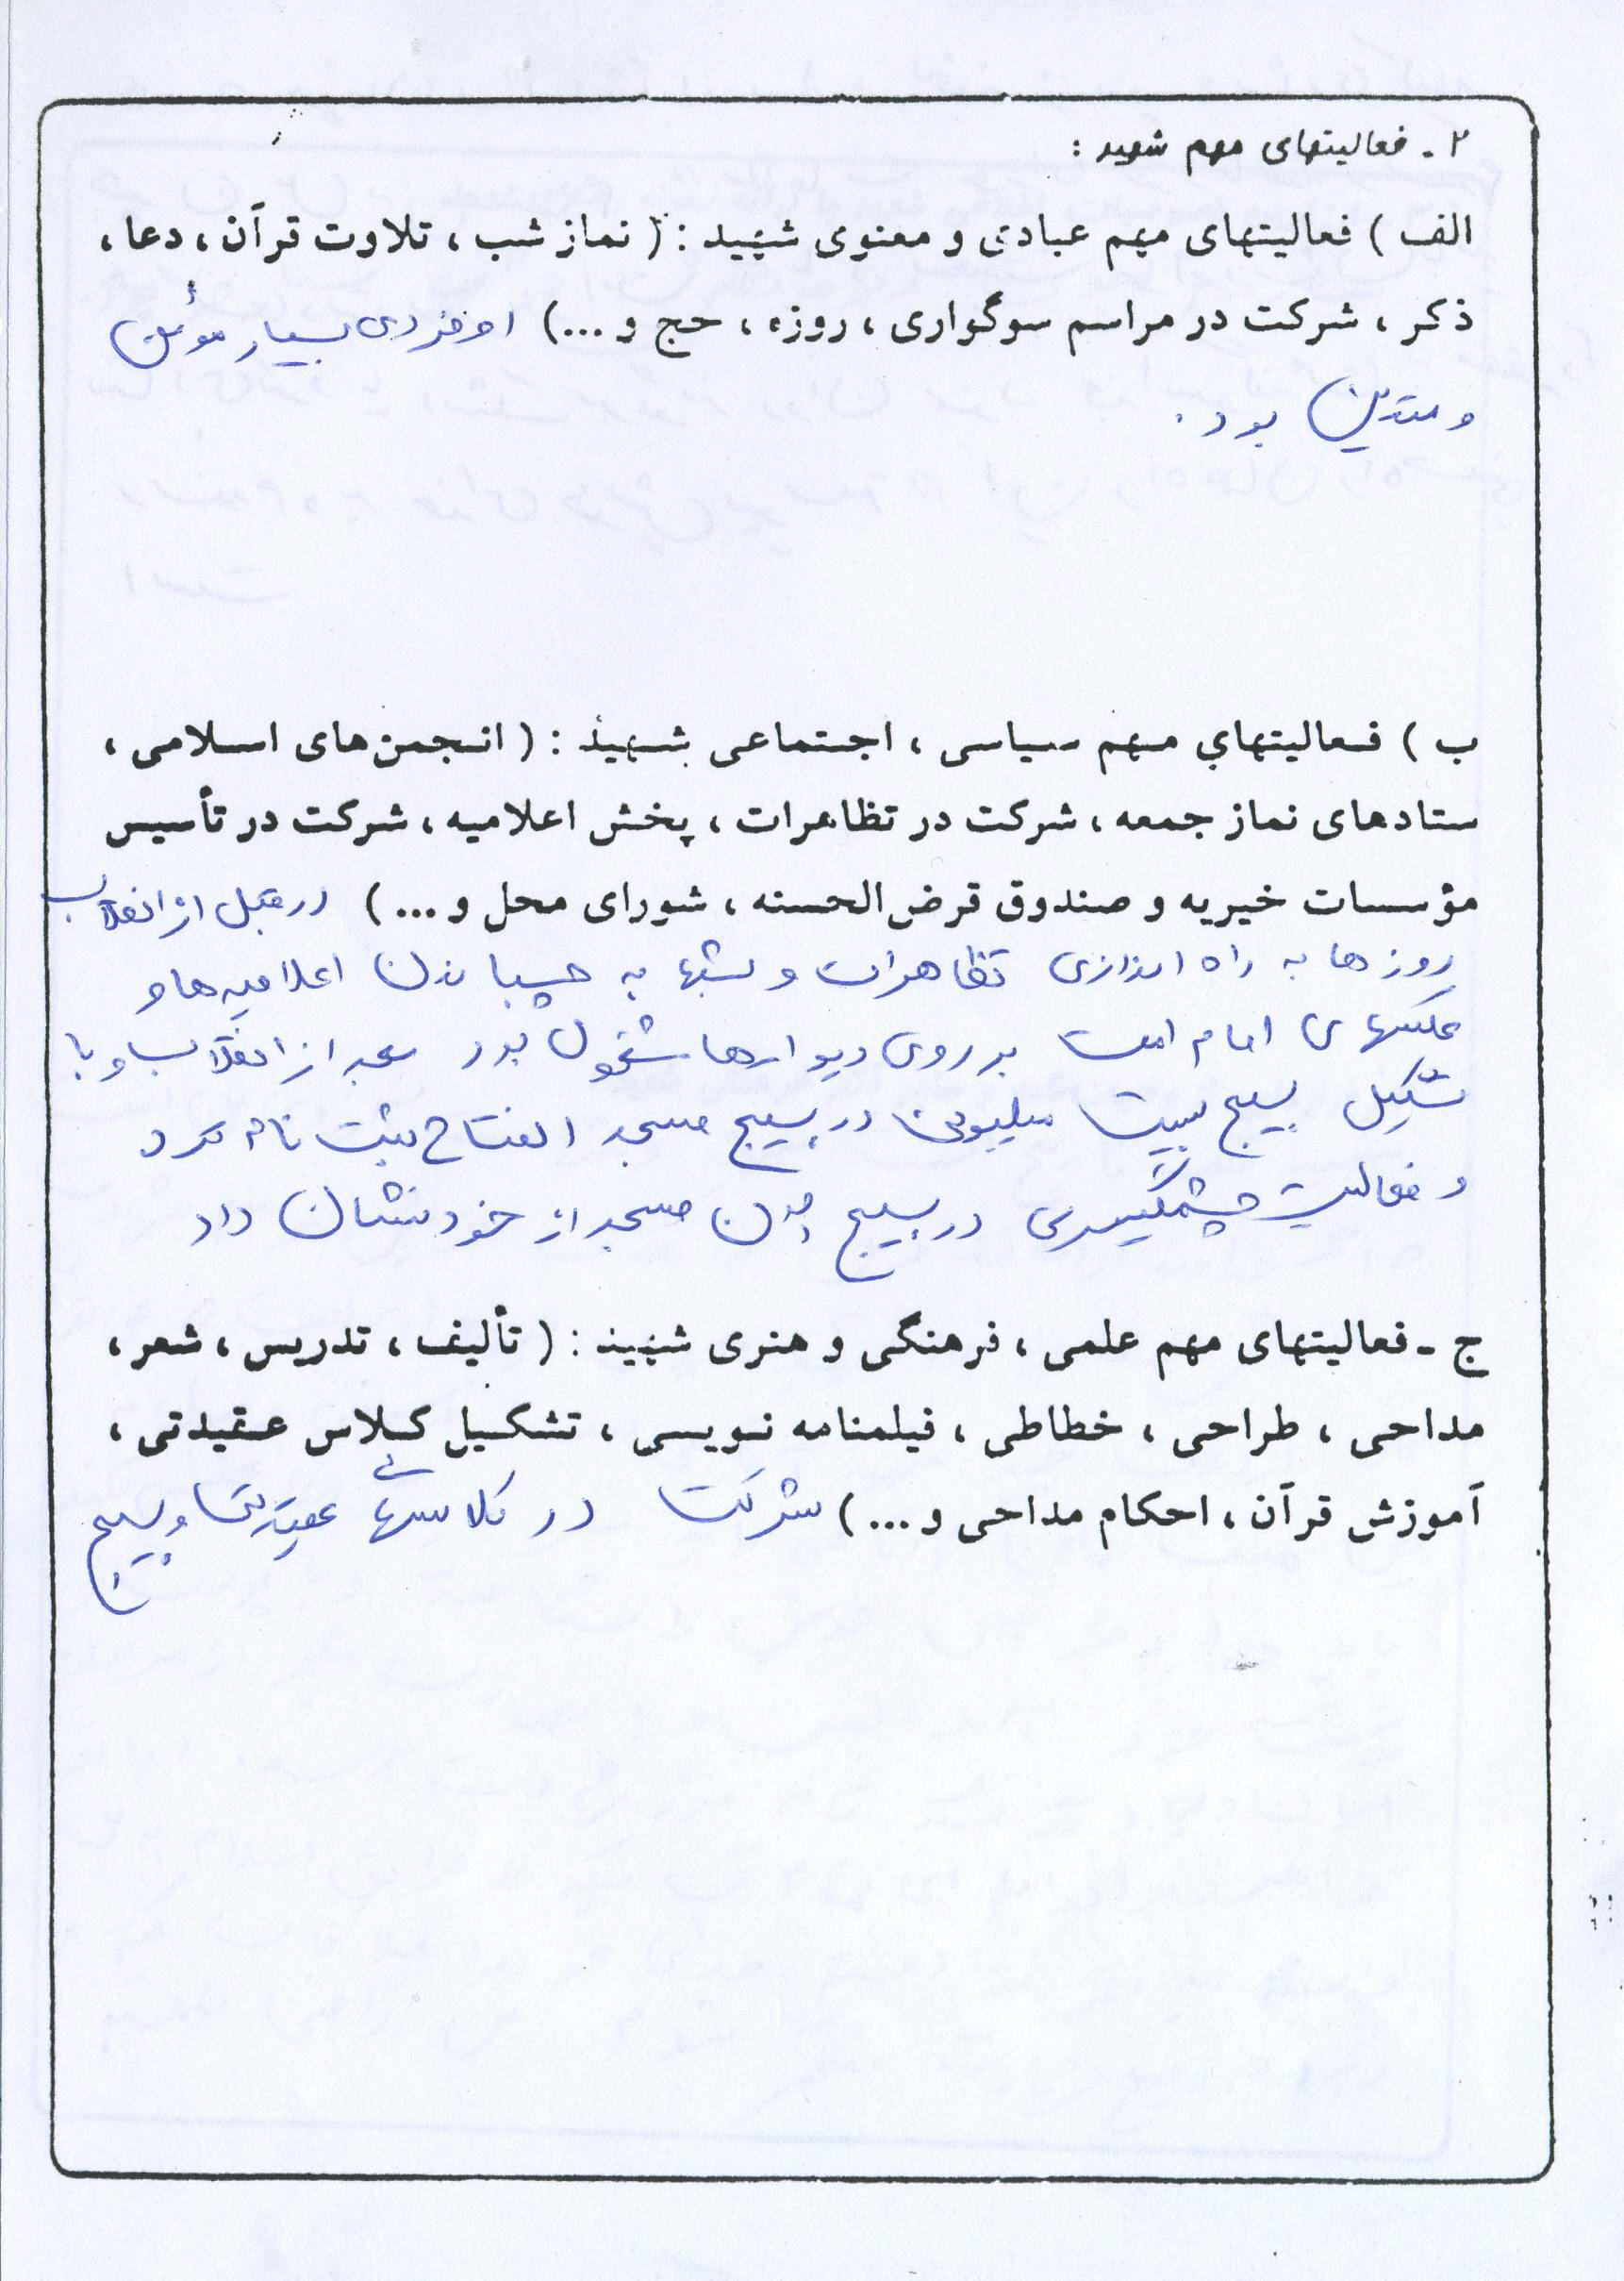 ۲ ـ فعالیتهای مهم شهید :
الف ) فعالیتهای مهم عبادی و معنوی شهید : ( نماز شب ، تلاوت قرآن ، دعا ،
ذکر ، شرکت در مراسم سوگواری ، روزه ، حج و ...) او فردی بسیار مؤمن
و متدین بود .
ب ) فعالیتهای مهم سیاسی ، اجتماعی شهید : ( انجمن‌های اسلامی ،
ستادهای نماز جمعه ، شرکت در تظاهرات ، پخش اعلامیه ، شرکت در تأسیس
مؤسسات خیریه و صندوق قرض‌الحسنه ، شورای محل و ... ) در قبل از انقلاب
روزها به راه اندازی تظاهرات و شبها به چسباندن اعلامیه‌ها و
عکسهای امام امت بر روی دیوارها مشغول بود بعد از انقلاب و با
تشکیل بسیج بیست میلیونی در بسیج مسجد افتتاح ثبت نام کرد
و فعالیت چشمگیری در بسیج این مسجد از خود نشان داد
ج ـ فعالیتهای مهم علمی ، فرهنگی و هنری شهید : ( تألیف ، تدریس ، شعر ،
مداحی ، طراحی ، خطاطی ، فیلمنامه نویسی ، تشکیل کلاس عقیدتی ،
آموزش قرآن ، احکام مداحی و ... ) شرکت در کلاسهای عقیدتی بسیج